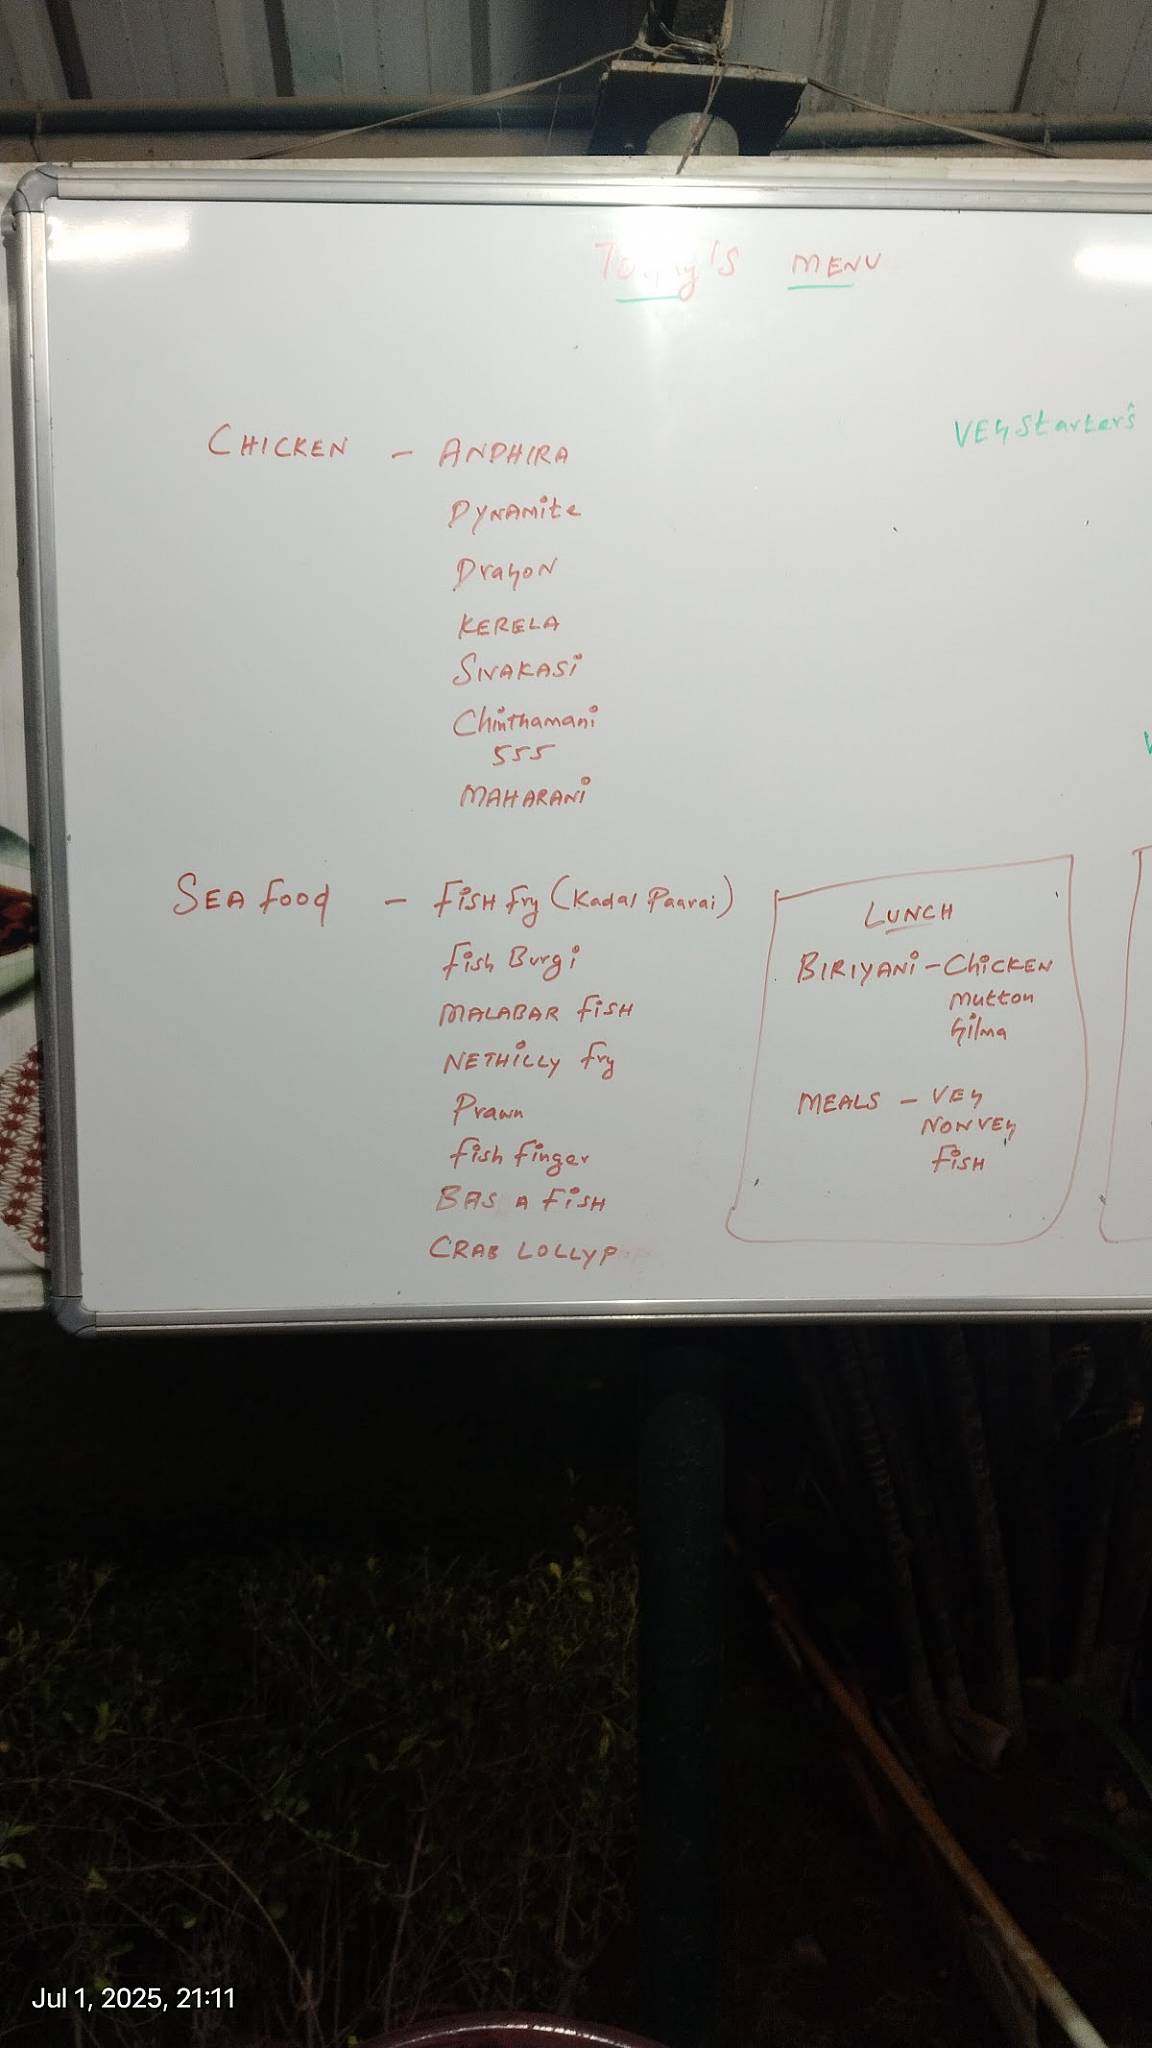 Today's MENU
CHICKEN - ANDHIRA
DYNAMite
DragoN
KERELA
SIVAKASi
Chinthamani
555
MAHARANi
SEA food - FiSH fry (Kadal Paarai)
fish Burgi
MALABAR fiSH
NETHiLLY fry
Prawn
fish finger
BAS A FiSH
CRAB LOLLYP
VEg Starter's
LUNCH
BIRIYANi - CHiCKEN
Mutton
gilma
MEALS - VEg
NONVEg
FiSH
Jul 1, 2025, 21:11